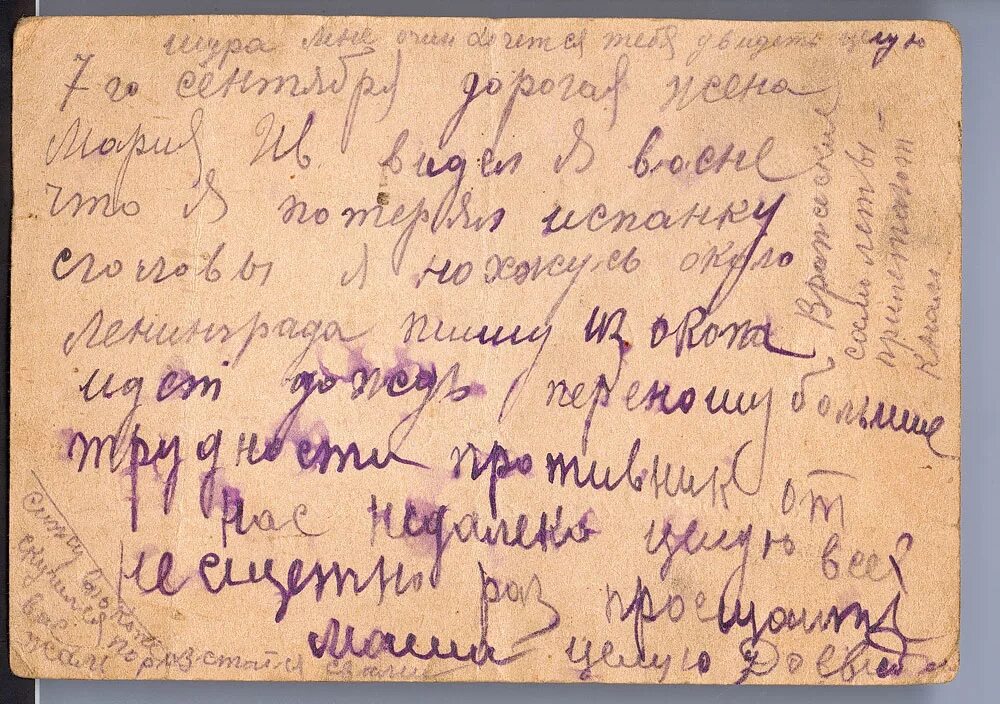 шура мне очин хочется тебя увидеть целую
7 го сентября дорогая жена
Мария Ив. видел Я восне
что Я потерял испанку
сголовы Я нохжусь около
Ленинграда пишу из окопа
идет дождь переношу большие
трудности противник от
нас недалеко целую всех
несщетно раз просщайте
Маши целую Досвид
Вражеские
самолеты
прилетают
Сижу вокопе
скучился по
вас
жаль растатся свами